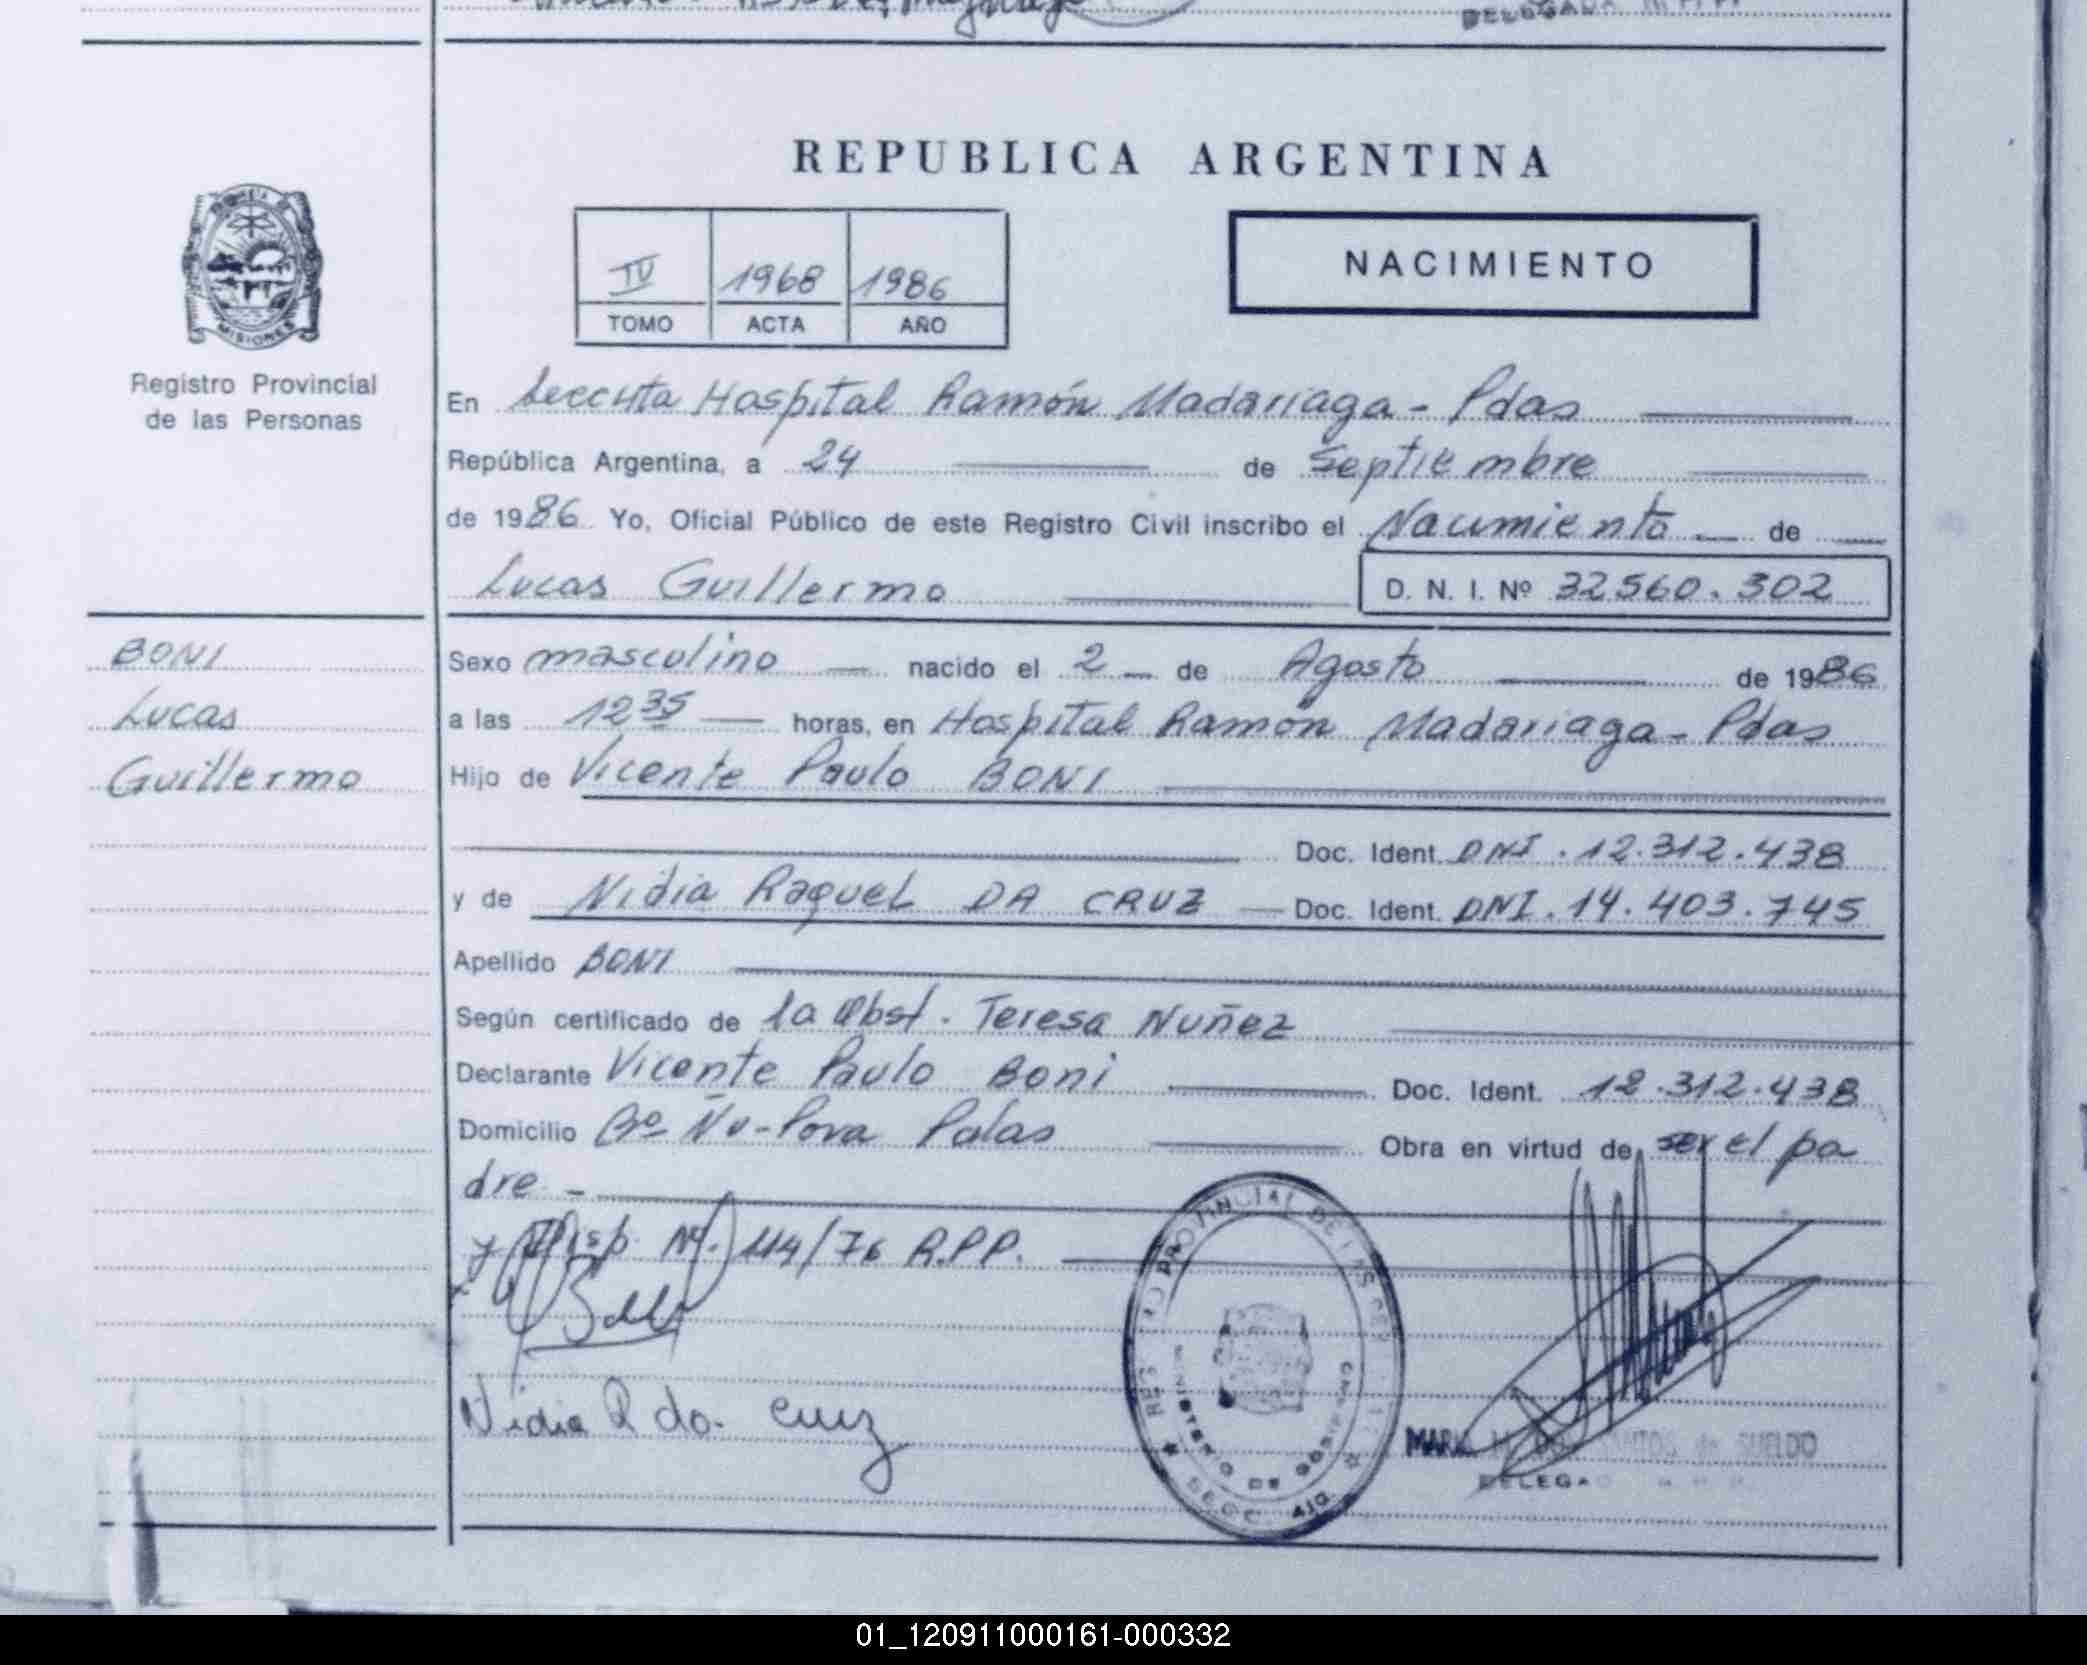 DELEGADA
REPUBLICA ARGENTINA
IV 1968 1986
TOMO ACTA AÑO
NACIMIENTO
MISIONES
Registro Provincial
de las Personas
En Seccita Hospital Ramón Madariaga - Pdas
República Argentina, a 24 de Septiembre
de 1986 Yo, Oficial Público de este Registro Civil inscribo el Nacimiento de
Lucas Guillermo D. N. I. Nº 32560.302
BONI
Lucas
Guillermo
Sexo masculino nacido el 2 de Agosto de 1986
a las 12 35 horas, en Hospital Ramón Madariaga - Pdas
Hijo de Vicente Paulo BONI
Doc. Ident. DNI. 12.312.438
y de Nidia Raquel DA CRUZ Doc. Ident. DNI. 14.403.745
Apellido BONI
Según certificado de la Obst. Teresa Nuñez
Declarante Vicente Paulo Boni Doc. Ident. 12.312.438
Domicilio Bº Ñu-Pora Pdas Obra en virtud de ser el pa
dre -
y Disp. Nº. 114/76 R.P.P.
Nidia R da. Cruz
PROVINCIAL DE
MINISTERIO DE GOBIERNO
SANTOS de SUELDO
DELEGAD
01_120911000161-000332